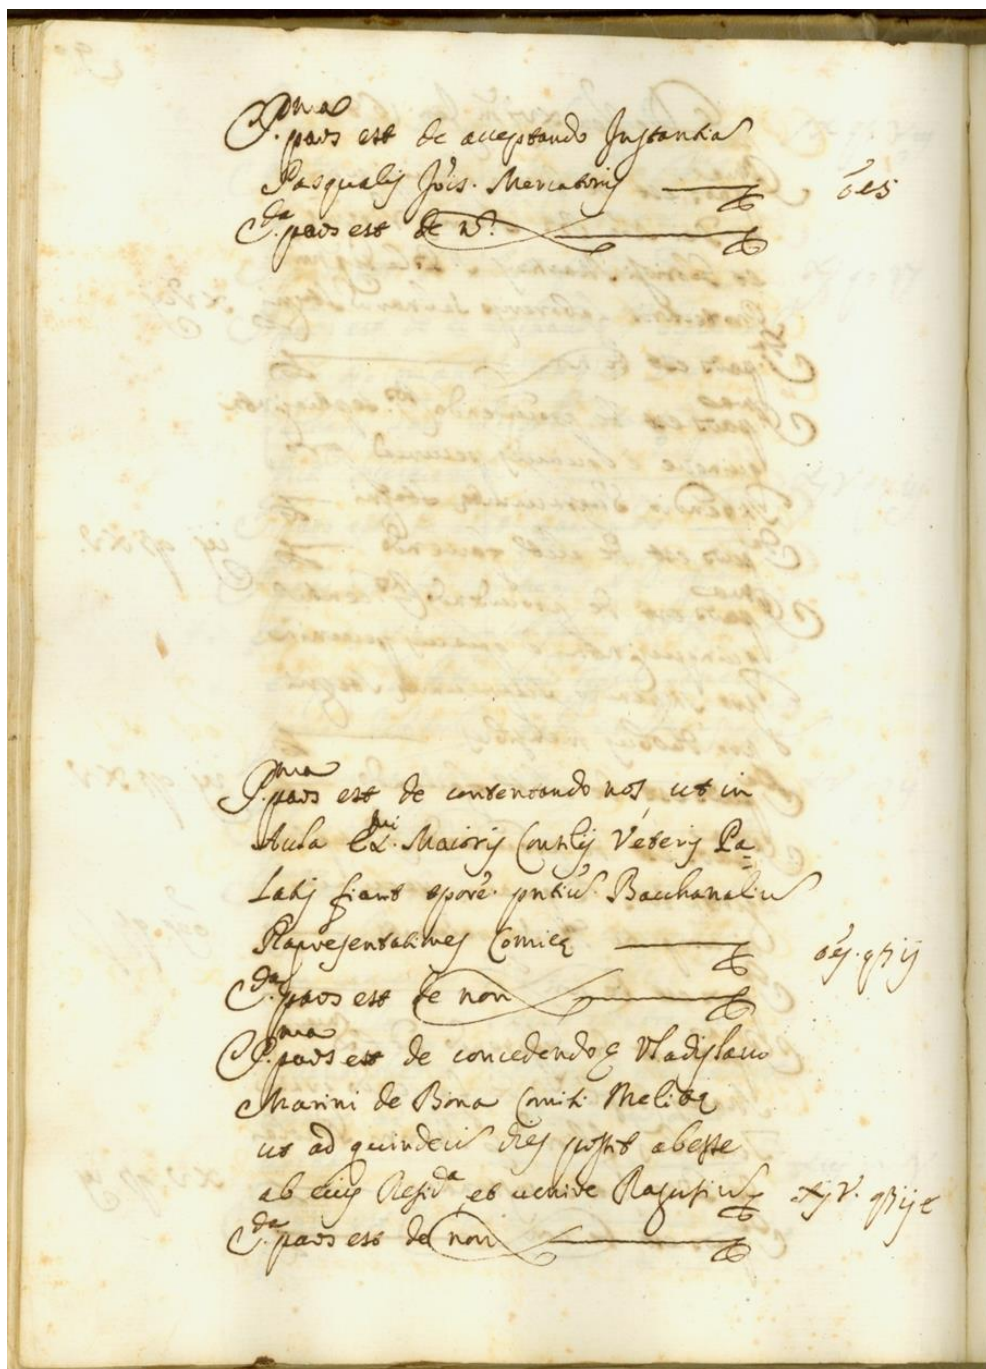 P.ma pars est de acceptando Instantia
Pasqualis Jo:is Mercatoris
ões
S.da pars est de n.
P.ma pars est de contentando nos ut in
Aula Ex.mi Maioris Consilij Veteris Pa=
latij fiant Bacchanaliu
Rapresentationes Comicę
S.da pars est de non
P.ma pars est de concedendo Vladislavo
Marini de Bona Comiti Melitę
ut ad quindecim dies possit abesse
ab eius Resid.a et venire Ragusium
S.da pars est de non